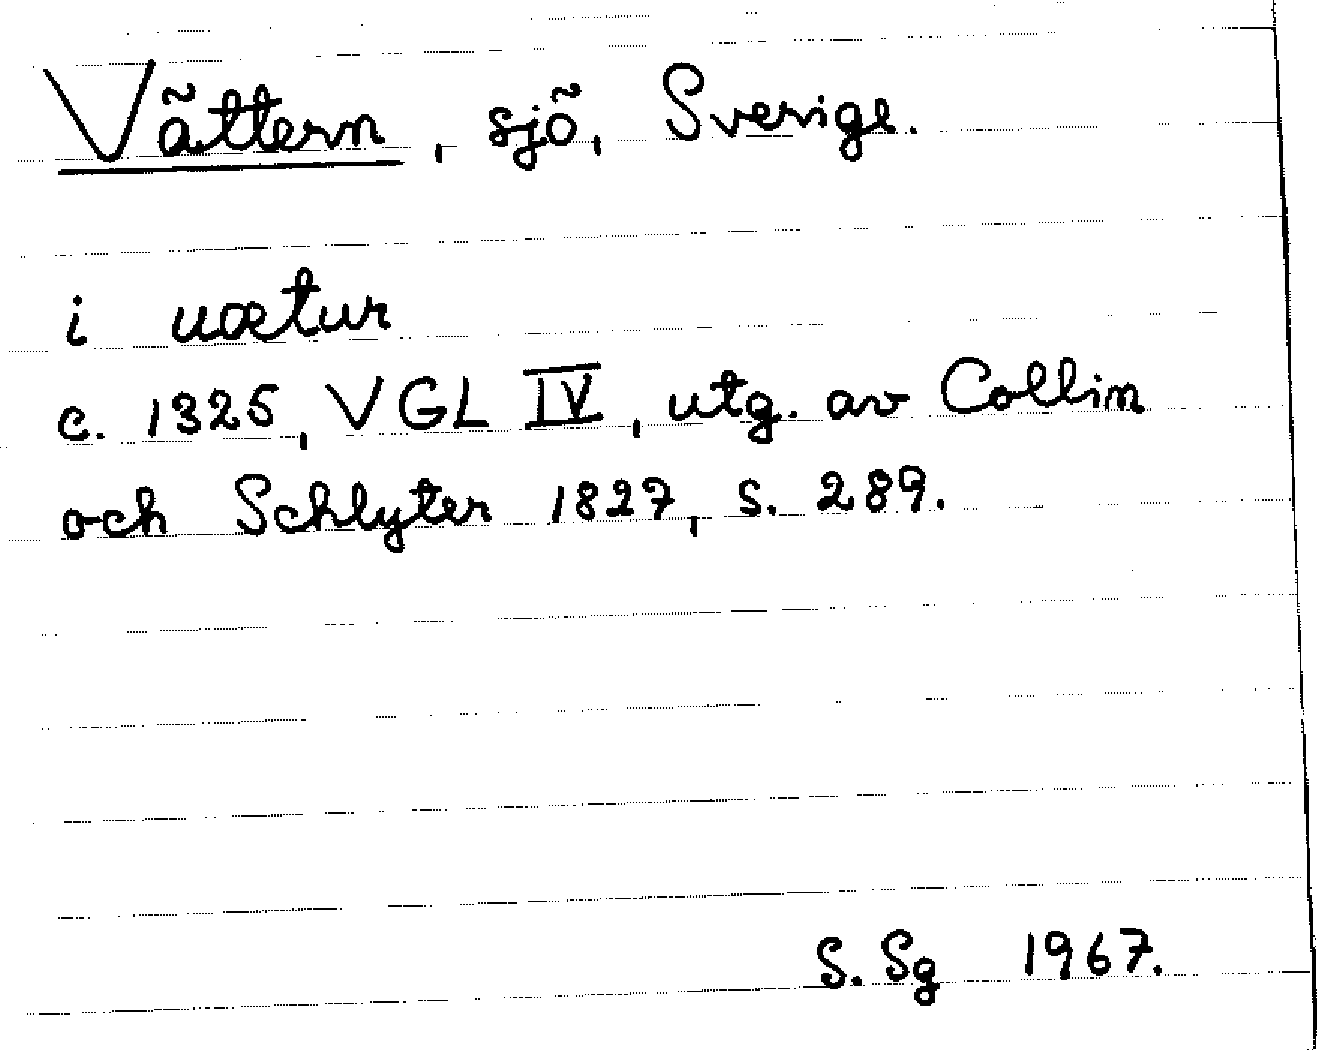 Vättern, sjö, Sverige.
i uætur
c. 1325, VGL IV, utg. av Collin
och Schlyter 1827, s. 289.
S. Sg 1967.